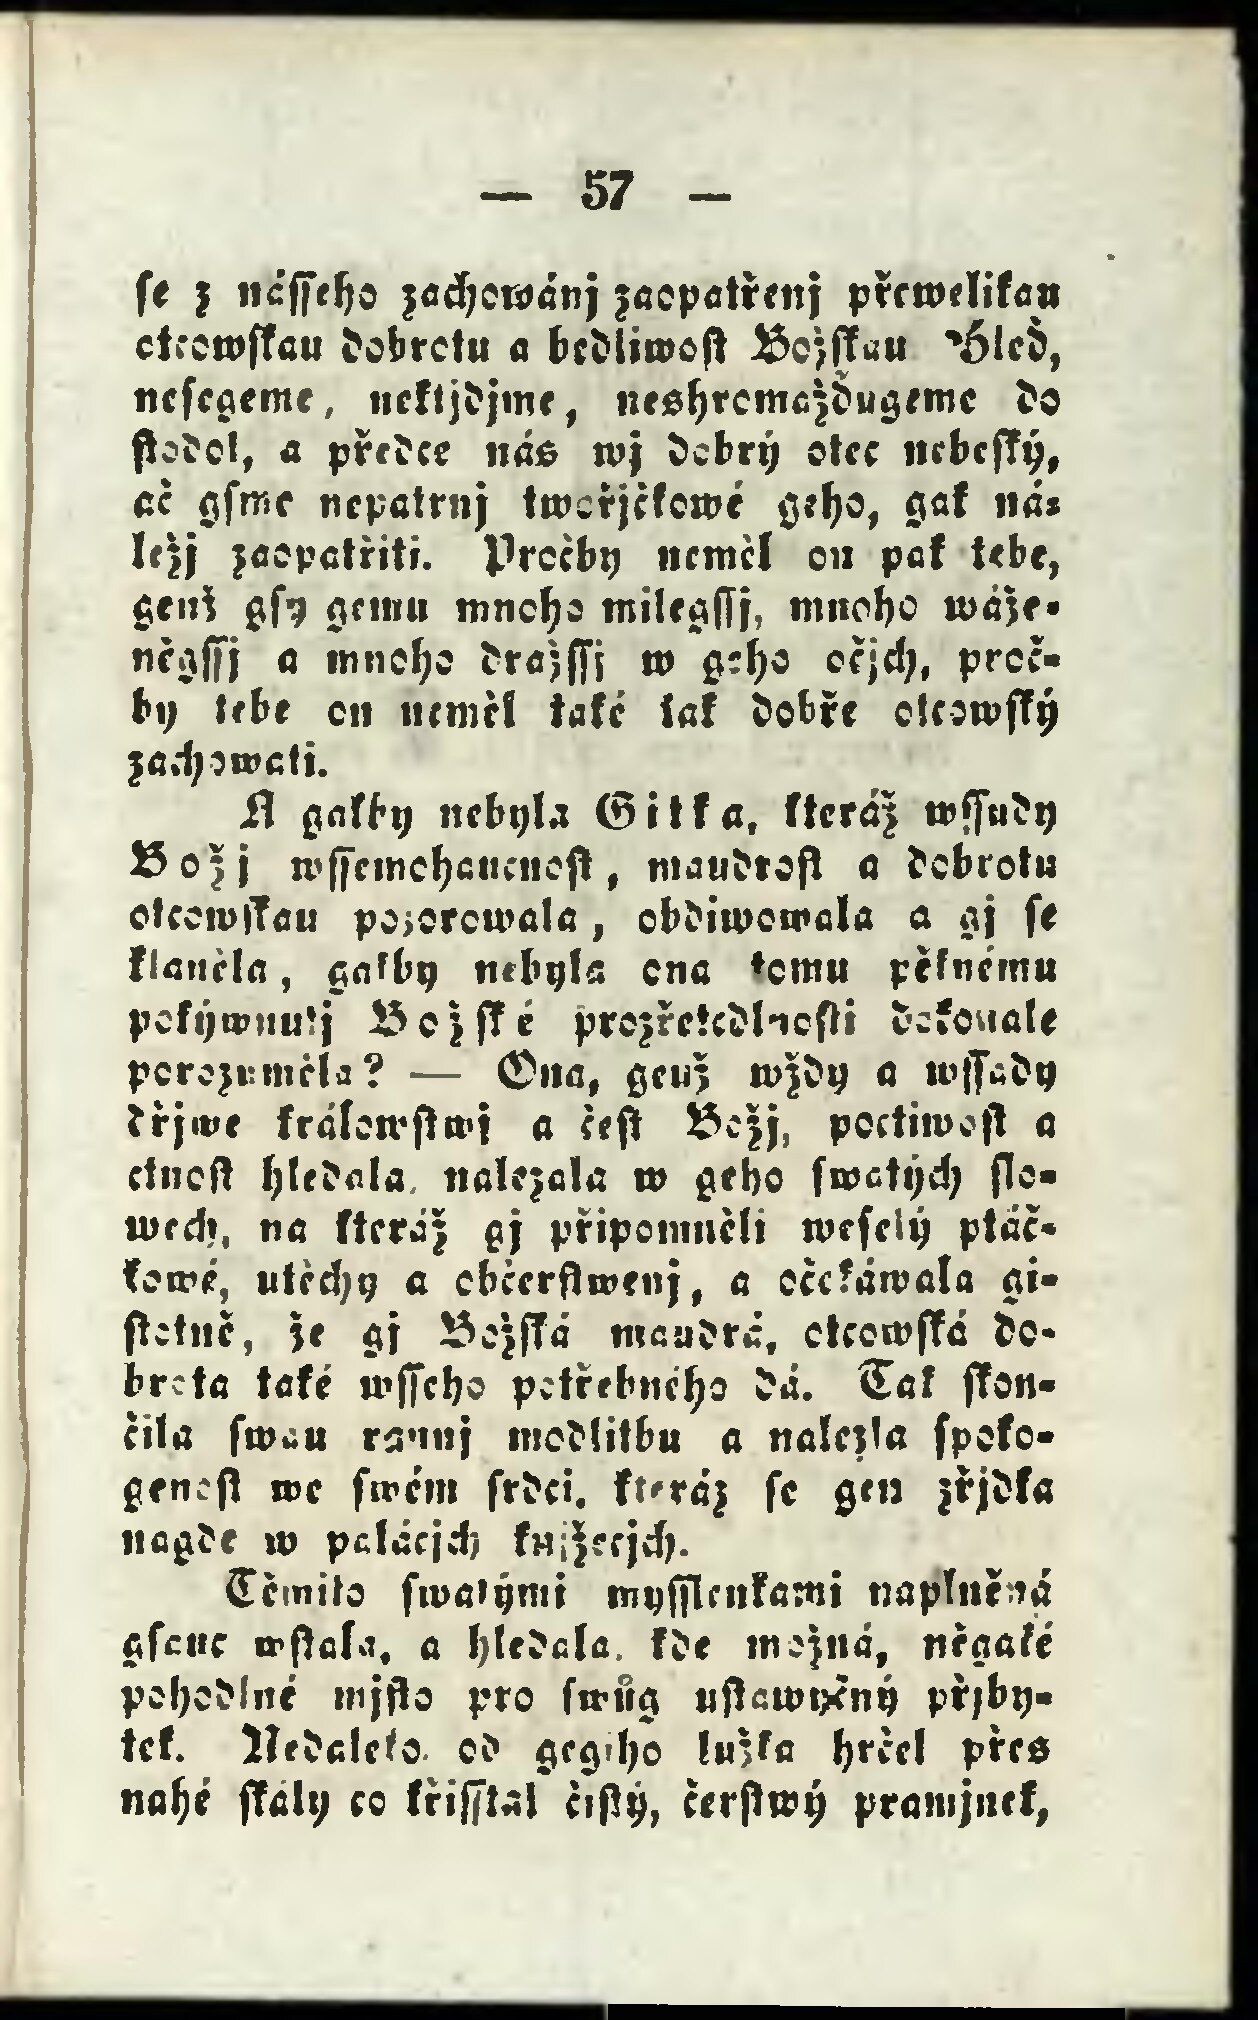 — 57 —
se z násseho zachowánj zaopatřenj přewelikau
otcowskau dobrotu a bedliwost Božskau. Hled,
nesegeme, neklјdjme, neshromažďugeme do
stodol, a předce nás wj dobrý otec nebeský,
ač gsme nepatrnj twořjčkowé geho, gak ná-
ležj zaopatřiti. Pročby neměl on pak tebe,
genž gsy gemu mnoho milegssj, mnoho wáže-
něgssj a mnoho dražssj w geho očjch, proč-
by tebe on neměl také tak dobře otcowský
zachowati.
A gakby nebyla Gitka, kteráž wssudy
Božj wssemohaucnost, maudrost a dobrotu
otcowskau pozorowala, obdiwowala a gj se
klaněla, gakby nebyla ona tomu pěknému
pokýwnutj Božské prozřetedlnosti dokonale
porozuměla? — Ona, genž wždy a wssady
dřjwe králowstwj a čest Božj, poctiwost a
ctnost hledala, nalezala w geho swatých slo-
wech, na kteráž gj připomněli weselý ptáč-
kowé, utěchy a občerstwenj, a očekáwala gi-
stotně, že gj Božská maudrá, otcowská do-
brota také wsseho potřebného dá. Tak skon-
čila swau rannj modlitbu a nalezla spoko-
genost we swém srdci, kteráz se gen zřjdka
nagde w palácjch knjžecjch.
Těmito swatými mysslenkami naplněná
gsauc wstala, a hledala, kde možná, něgaké
pohodlné mjsto pro swůg ustawičný přjby-
tek. Nedaleko od gegiho lužka hrčel přes
nahé skály co křisstál čistý, čerstwý pramjnek,